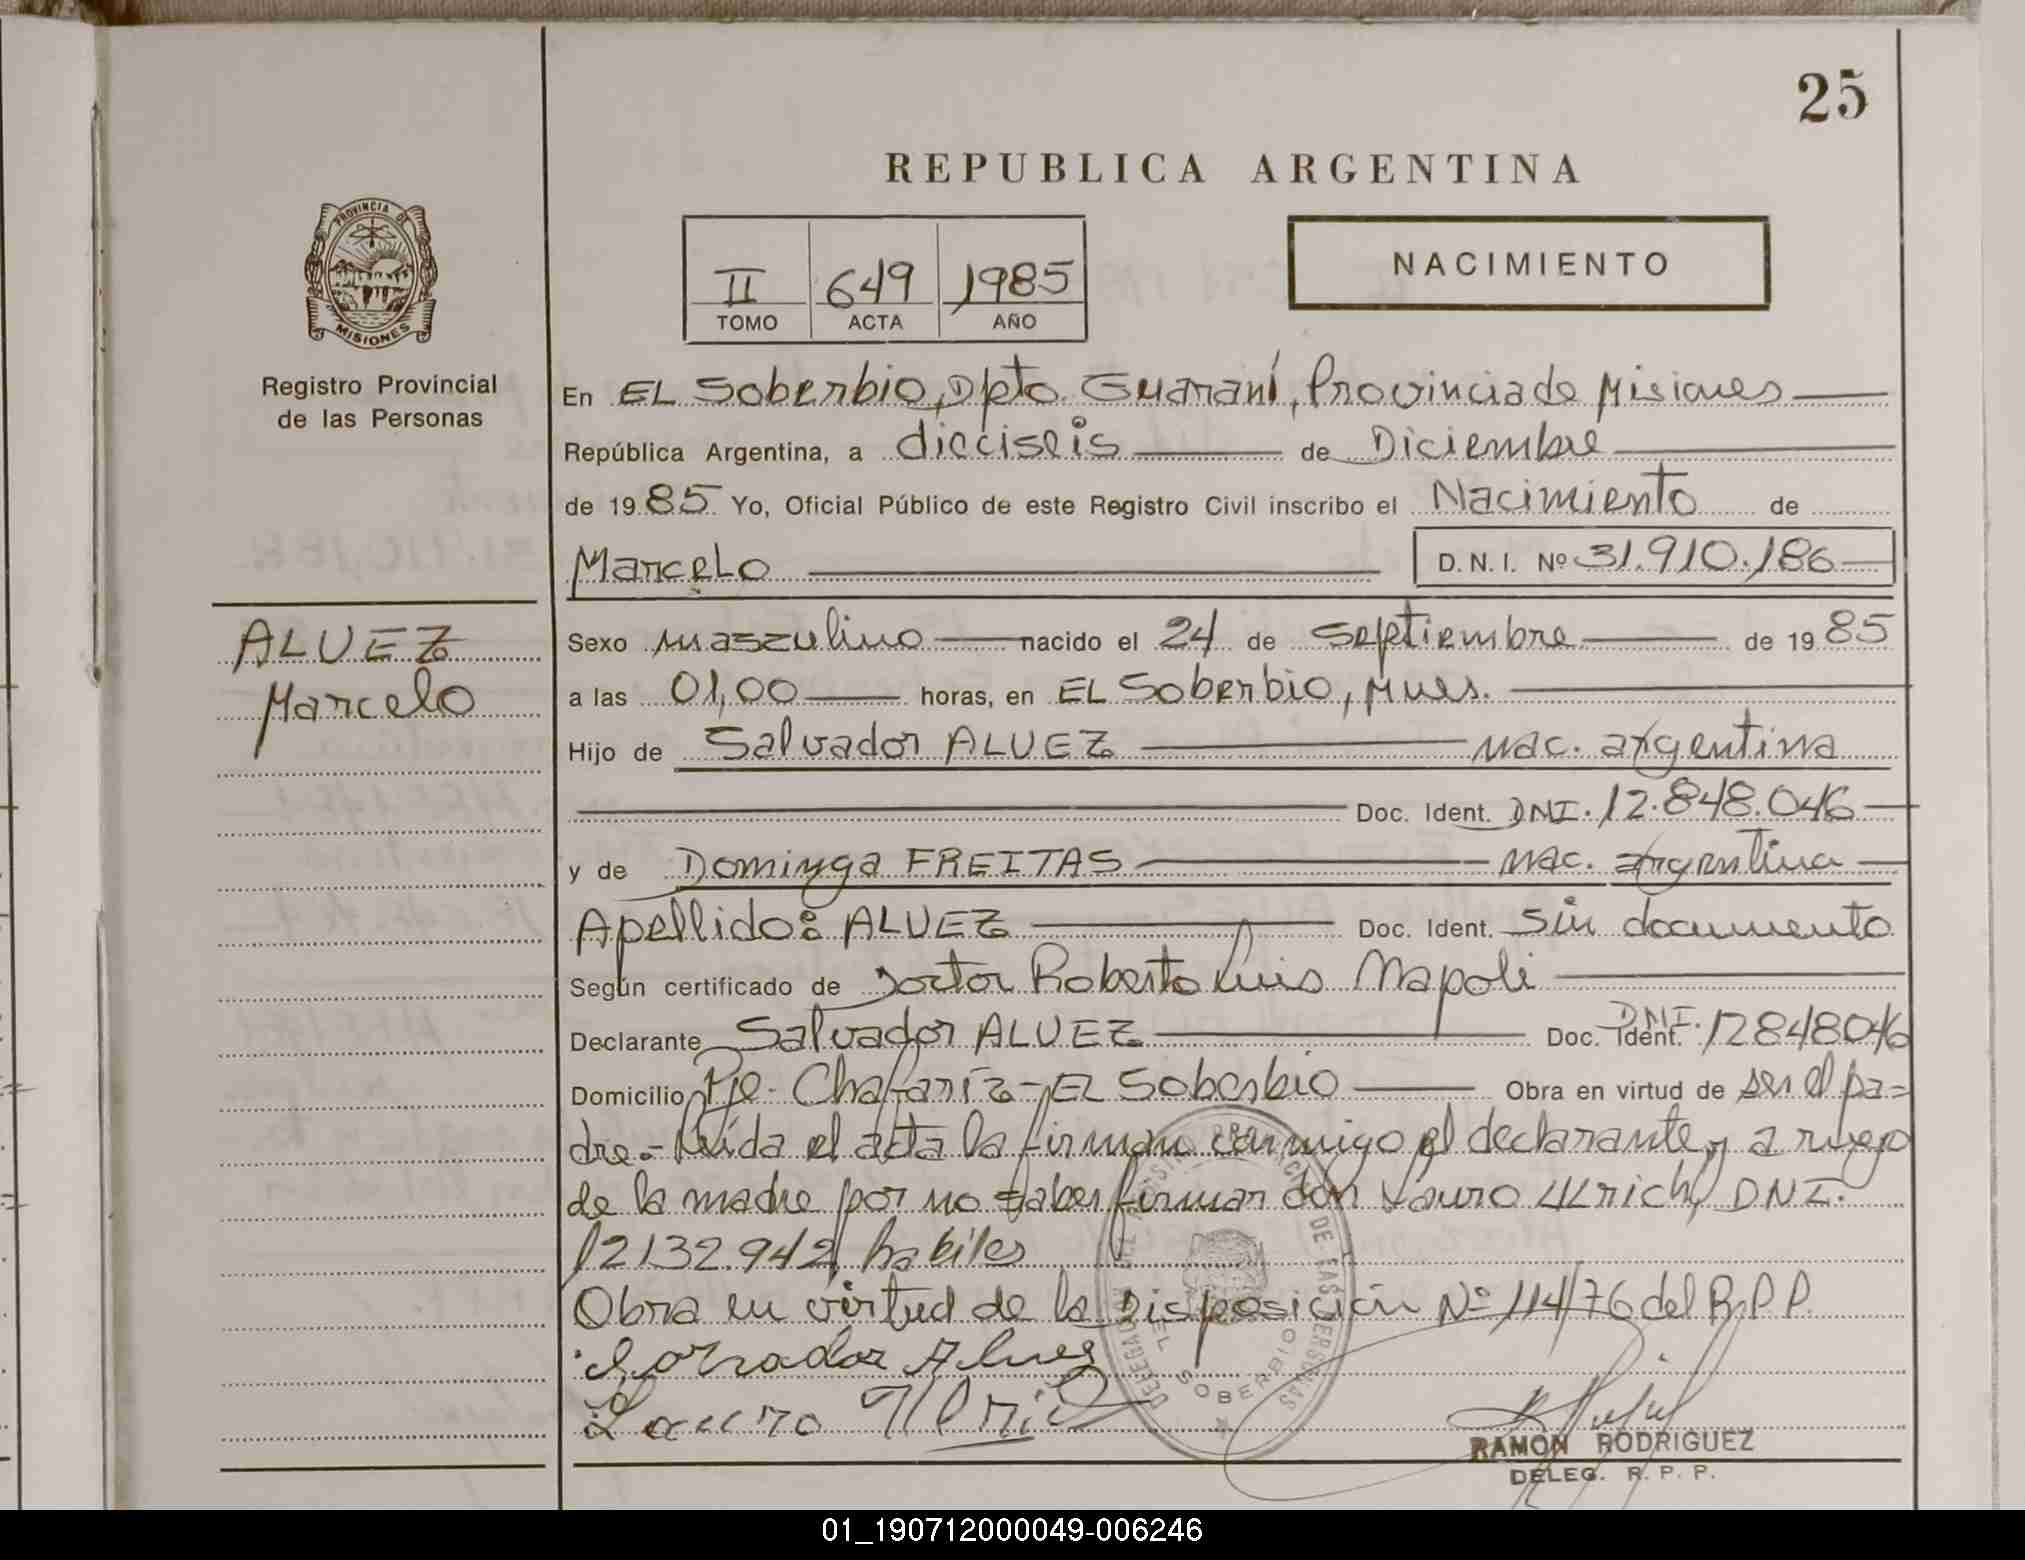 25
REPUBLICA ARGENTINA
PROVINCIA DE
MISIONES
Registro Provincial
de las Personas
II 649 1985
TOMO ACTA AÑO
NACIMIENTO
En EL Soberbio, Dpto. Guaraní, Provincia de Misiones
República Argentina, a dieciseis de Diciembre
de 1985 Yo, Oficial Público de este Registro Civil inscribo el Nacimiento de
Marcelo D.N.I. Nº 31.910.186
ALVEZ
Marcelo
Sexo masculino nacido el 24 de Septiembre de 1985
a las 01,00 horas, en EL Soberbio, Mnes.
Hijo de Salvador ALVEZ nac. argentina
Doc. Ident. DNI. 12.848.046
y de Dominga FREITAS nac. argentina
Apellido: ALVEZ Doc. Ident. Sin documento
Según certificado de Doctor Roberto Luis Napoli
Declarante Salvador ALVEZ Doc. Ident. DNI. 12848046
Domicilio Pje. Chafariz - EL Soberbio Obra en virtud de ser el pa=
dre.- Leída el acta la firman conmigo el declarante, y a ruego
de la madre por no saber firmar don Lauro ULrich, DNI.
12132.942, habiles
Obra en virtud de la Disposición Nº 114/76 del R.P.P.
Salvador Alves
Lauro Ulrich
EL SOBERBIO
RAMON RODRIGUEZ
DELEG. R. P. P.
01_190712000049-006246